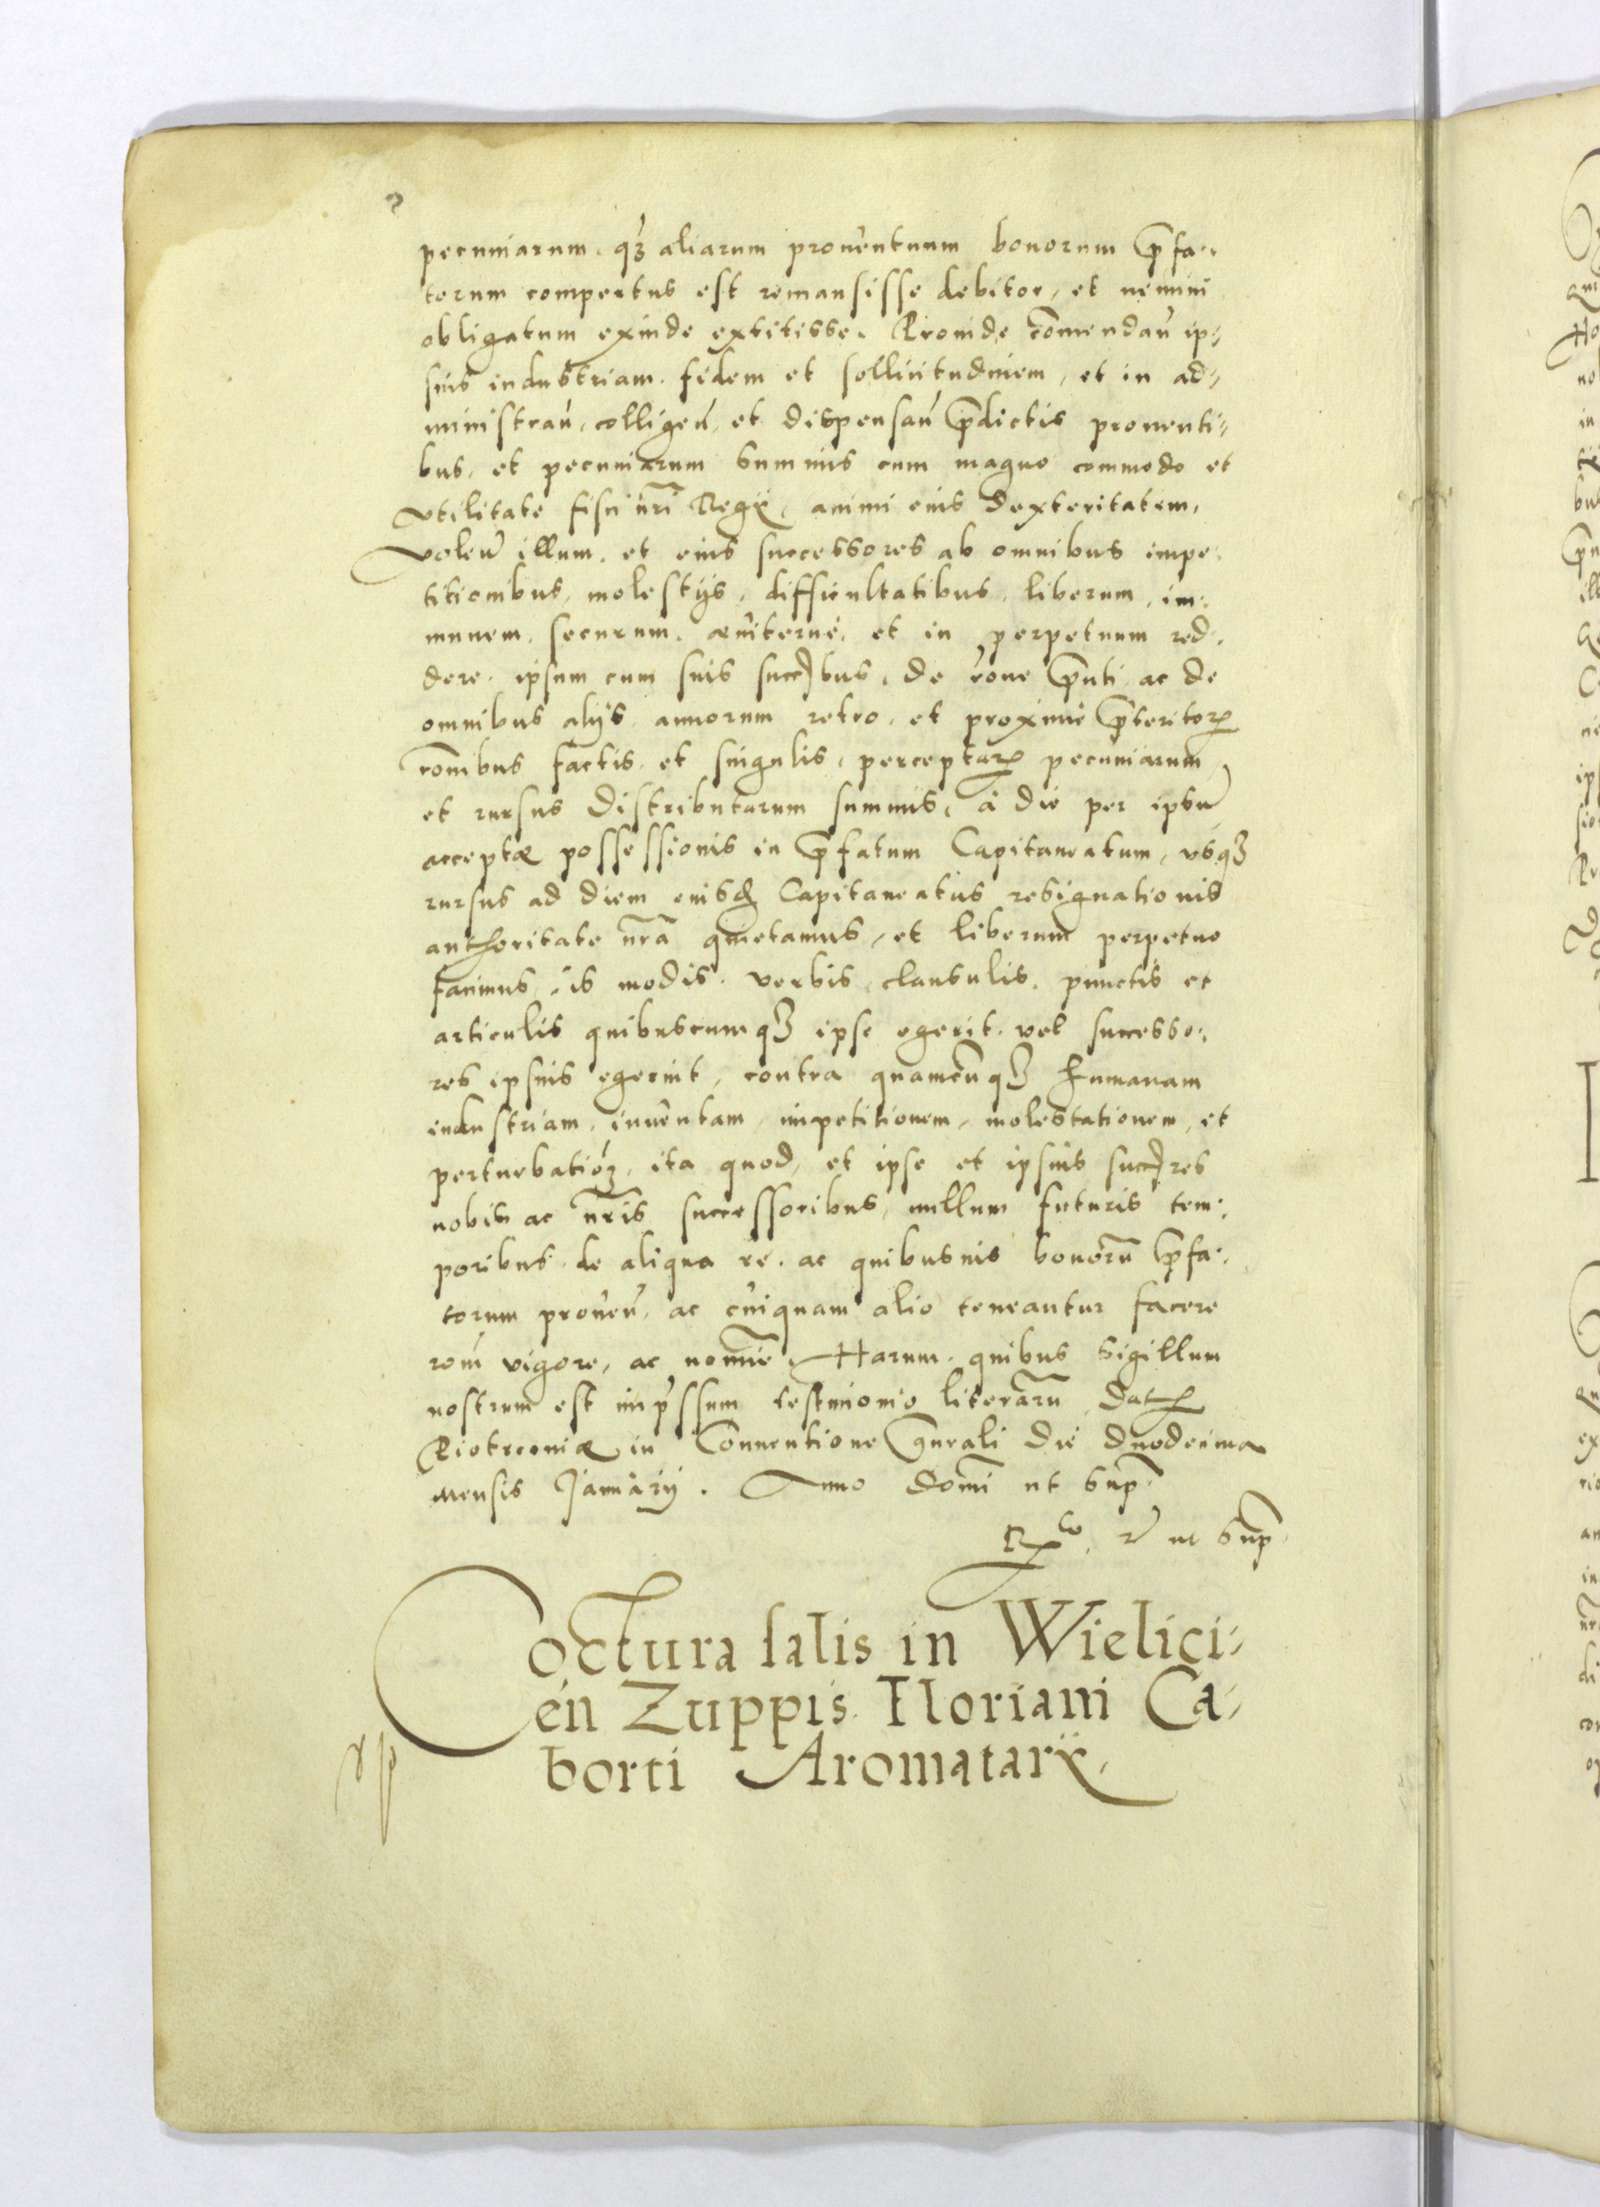 pecuniarum, q3 aliarum prouentuum bonorum p̄fa-
torum compertus est remansisse debitor, et nemini
obligatum exinde extitisse. Proinde com̄endan̄ ip-
sius industriam, fidem et sollicitudinem, et in ad-
ministran̄, colligen̄, et dispensan̄ p̄dictis prouenti-
bus, et pecuniarum summis cum magno commodo et
vtilitate fisci nr̄i Regij, animi eius dexteritatem,
volen̄ illum, et eius successores ab omnibus impe-
titionibus, molestijs, difficultatibus, liberum, im-
munem, securum, æuiterne, et in perpetuum red-
dere, ipsum cum suis succ̄bus, de r̄one p̄nti ac de
omnibus alijs annorum retro, et proxime p̄teritor̄
r̄onibus factis, et singulis, perceptar̄ pecuniarum,
et rursus distributarum summis, à die per ipsum
acceptæ possessionis in p̄fatum Capitaneatum, vsq3
rursus ad diem eiusd̄ Capitaneatus resignationis
authoritate nr̄a quietamus, et liberum perpetuo
facimus, is modis, verbis, clausulis, punctis et
articulis quibuscumq3 ipse egerit, vel successo-
res ipsius egerint, contra quamcunq3 humanam
industriam, inuentam, impetitionem, molestationem, et
perturbatioē3, ita quod, et ipse et ipsius succ̄res
nobis ac nr̄is successoribus, nullum futuris tem-
poribus, de aliqua re, ac quibusuis bonorū p̄fa-
torum prouen̄, ac cuiquam alio teneantur facere
rōm vigore, ac nomīe, Harum, quibus Sigillum
nostrum est imp̄ssum testimonio literarū, Dat̄
Piotrconiæ in Conuentione gn̄erali die duodecima
mensis Januarij. Anno Domī ut sup̄
R̄o, 2 ut sup̄
Coctura salis in Wielici-
en̄ Zuppis Floriani Ca-
borti Aromatarij.